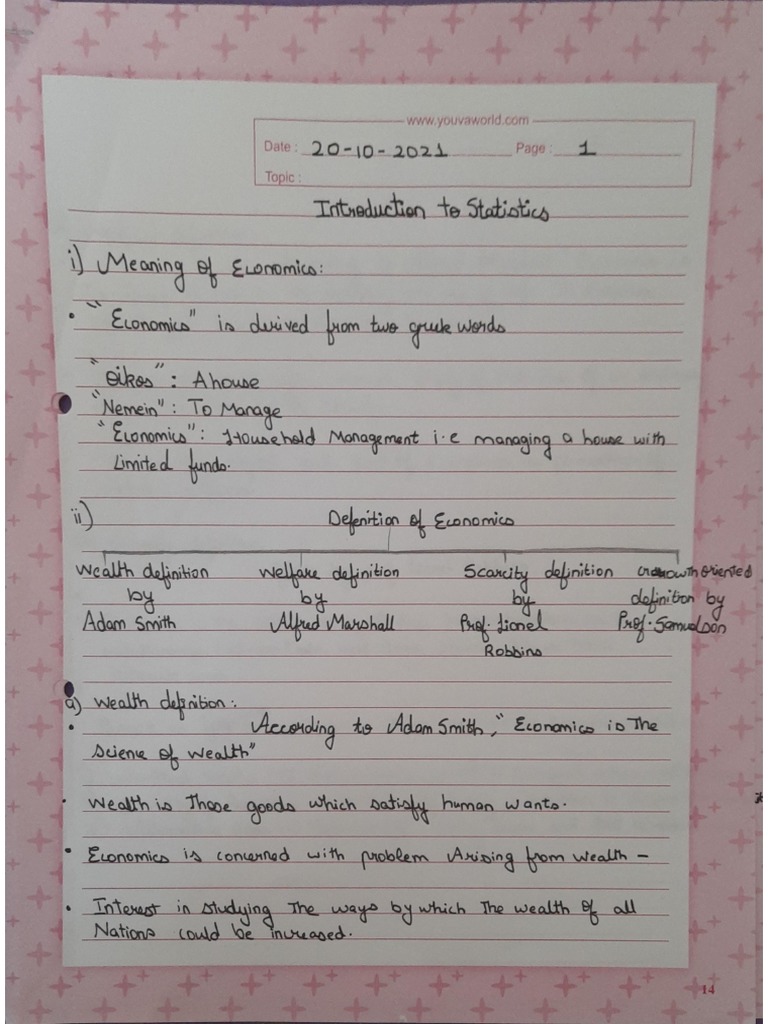 www.youvaworld.com
Date : 20-10-2021 Page : 1
Topic :
Introduction to Statistics
i) Meaning of Economics:
• "Economics" is derived from two greek words
"Oikos" : A house
"Nemein" : To Manage
"Economics" : Household Management i.e managing a house with
Limited funds.
ii) Defenition of Economics
Wealth definition by Adam Smith
Welfare definition by Alfred Marshall
Scarcity definition by Prof. Lionel Robbins
Growth oriented definition by Prof. Samuelson
a) Wealth definition :
• According to Adam Smith, "Economics is The
Science of Wealth"
• Wealth is Those goods which satisfy human wants.
• Economics is concerned with problem Arising from wealth –
• Interest in studying The ways by which The wealth of all
Nations could be increased.
14